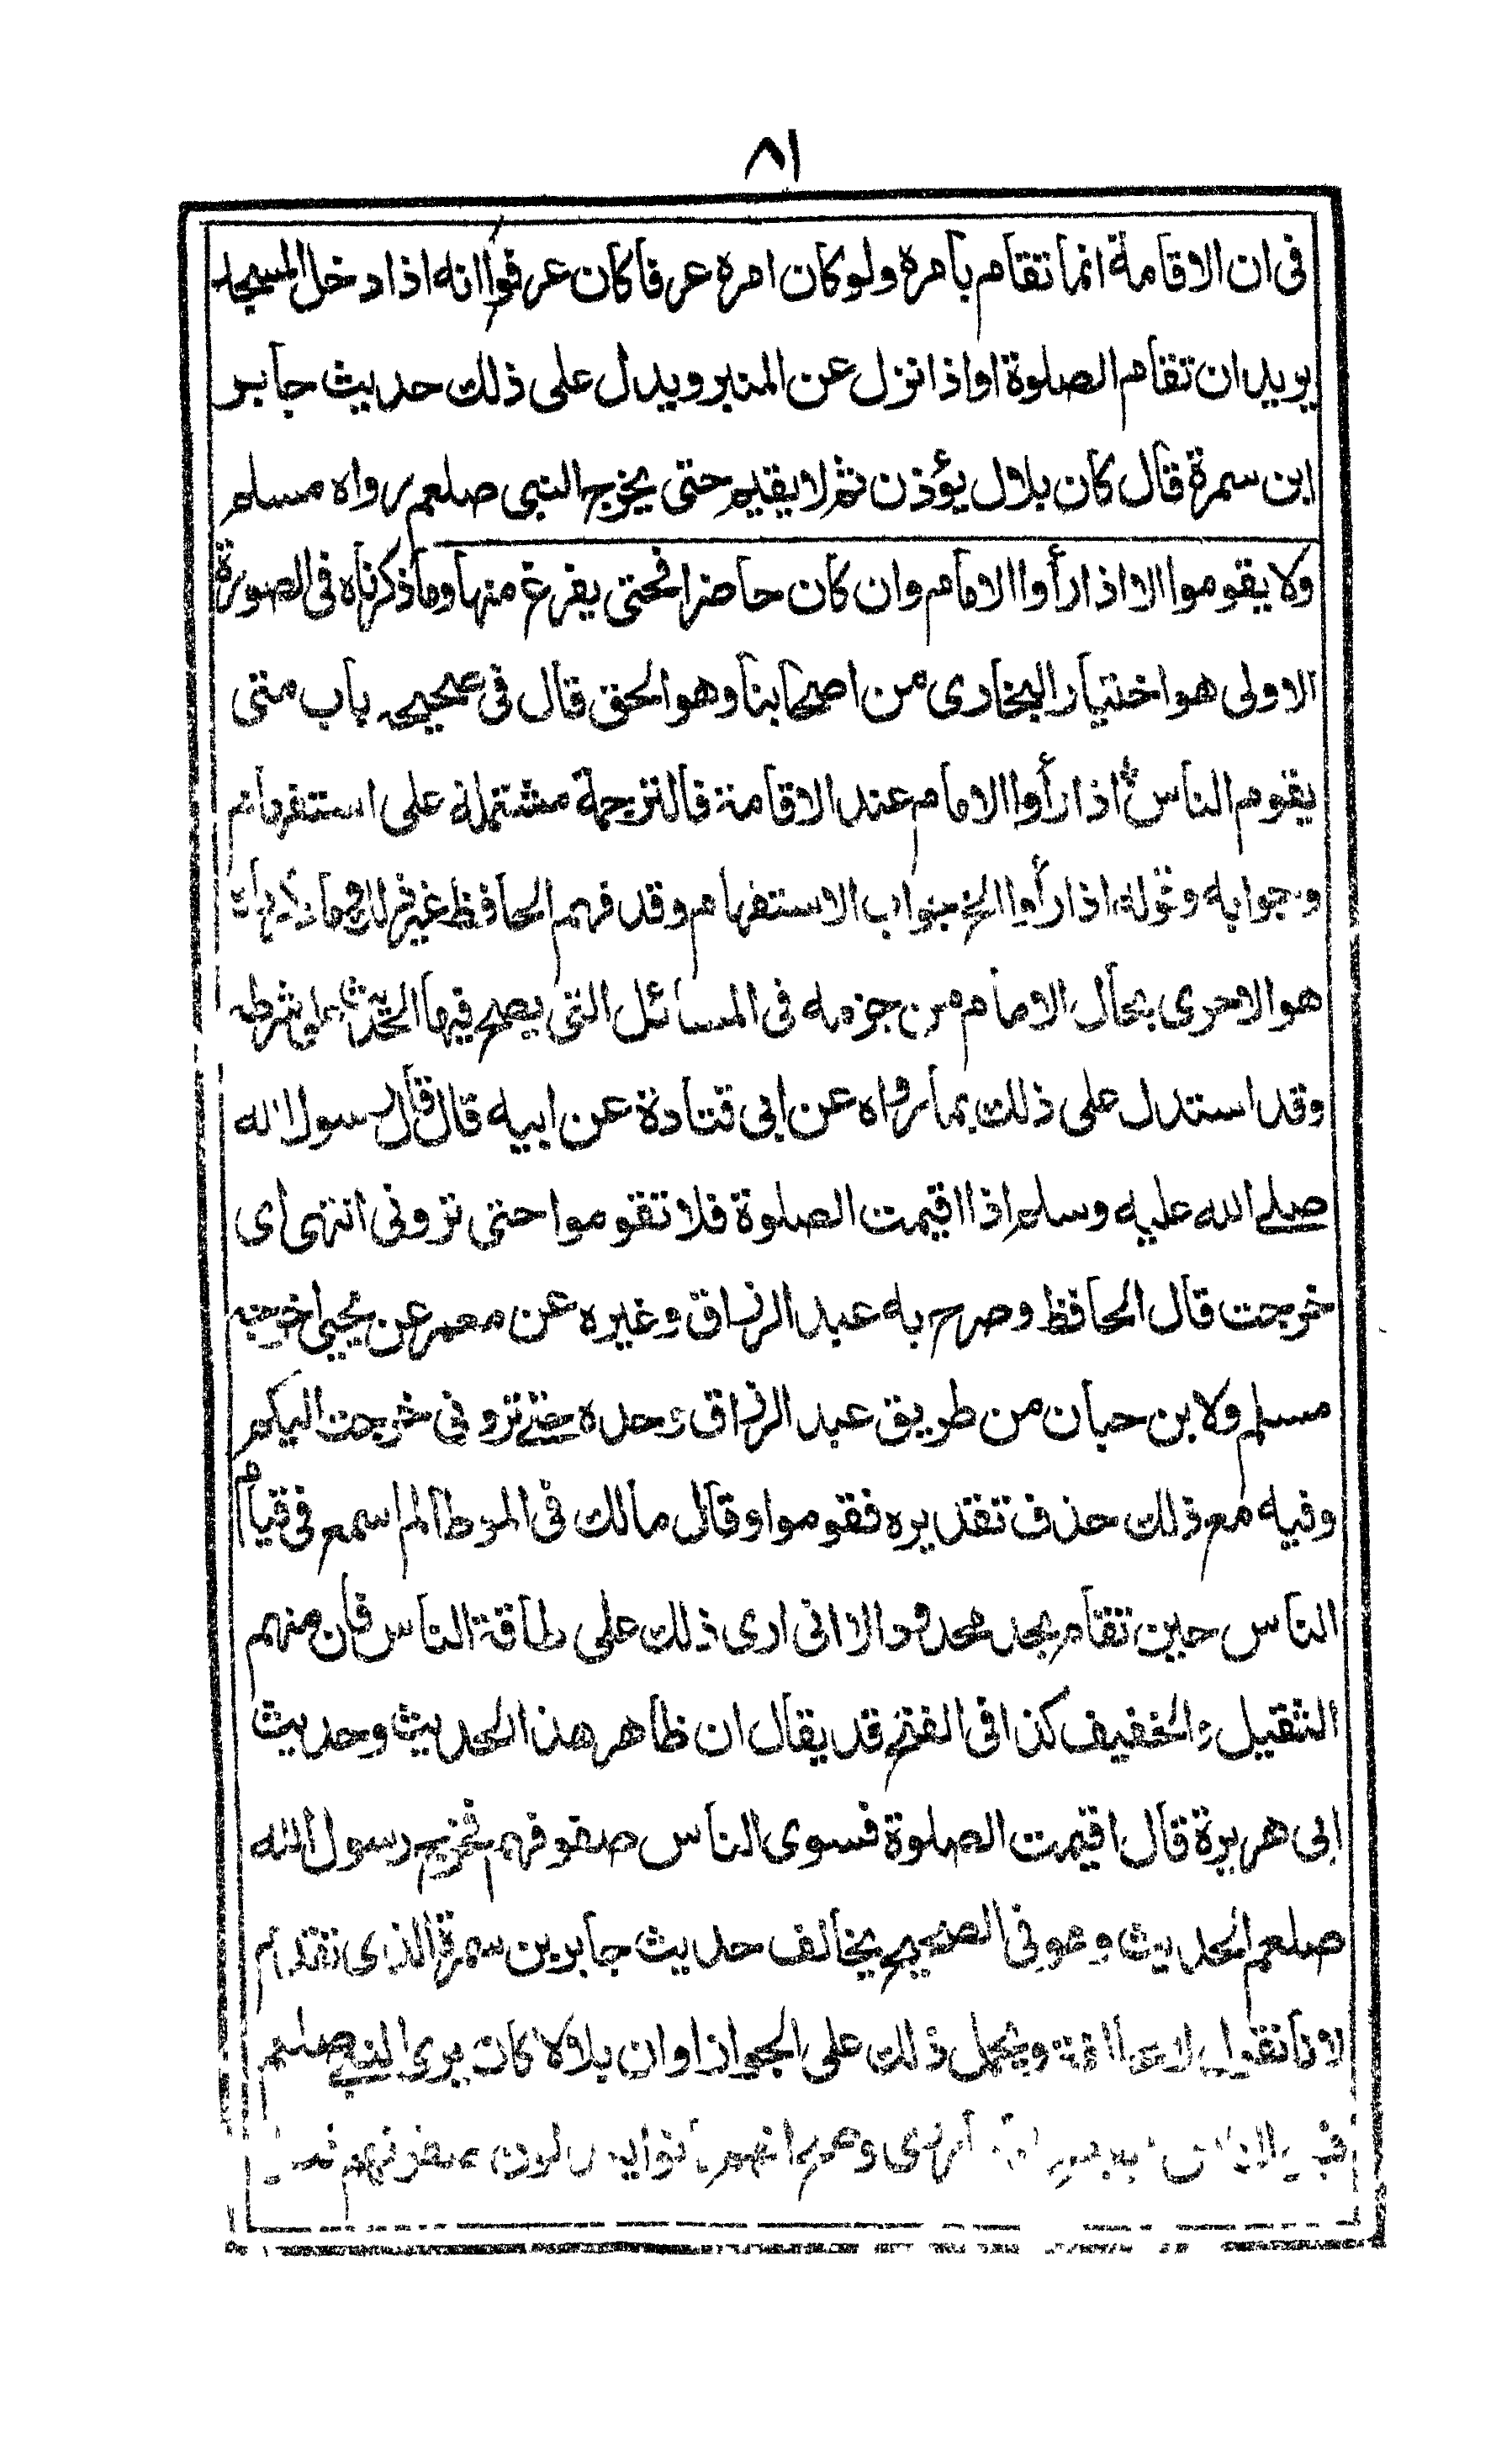 ٨١
فى ان الاقامة انما تقام بامره ولو كان امره عرفا كان عرفوا انه اذا دخل المسجد
يريد ان تقام الصلوة او اذا نزل عن المنبر ويدل على ذلك حديث جابر
ابن سمرة قال كان بلال يؤذن ثم لا يقيم حتى يخرج النبى صلعم رواه مسلم
ولا يقوموا الا اذا رأوا الامام وان كان حاضرا فحتى يفرغ منها وما ذكرناه فى الصورة
الاولى هو اختيار البخارى من اصحابنا وهو الحق قال فى صحيحه باب متى
يقوم الناس اذا رأوا الامام عند الاقامة فالترجمة مشتملة على استفهام
وجوابه وقوله اذا رأوا الخ جواب الاستفهام وقد فهم الحافظ غير
هو الاحرى بحال الامام من جزمه فى المسائل التى يصح فيها الحديث على شرطه
وقد استدل على ذلك بما رواه عن ابى قتادة عن ابيه قال قال رسول الله
صلے الله عليه وسلم اذا اقيمت الصلوة فلا تقوموا حتى ترونى انتهى اى
خرجت قال الحافظ وصرح به عبد الرزاق وغيره عن معمر عن يحيى اخرجه
مسلم ولابن حبان من طريق عبد الرزاق وحده حتے ترونى خرجت اليكم
وفيه مع ذلك حذف تقديره فقوموا وقال مالك فى الموطا لم اسمع فى قيام
الناس حين تقام بحد محدود الا انى ارى ذلك على طاقة الناس فان منهم
الثقيل والخفيف كذا فى الفتح قد يقال ان ظاهر هذا الحديث وحديث
ابى هريرة قال اقيمت الصلوة فسوى الناس صفوفهم فخرج رسول الله
صلعم الحديث وهو فى الصحيح يخالف حديث جابر بن سمرة الذى تقدم
لانا نقول لا مخالفة ويحمل ذلك على الجواز او ان بلالا كان يرى النبے صلعم